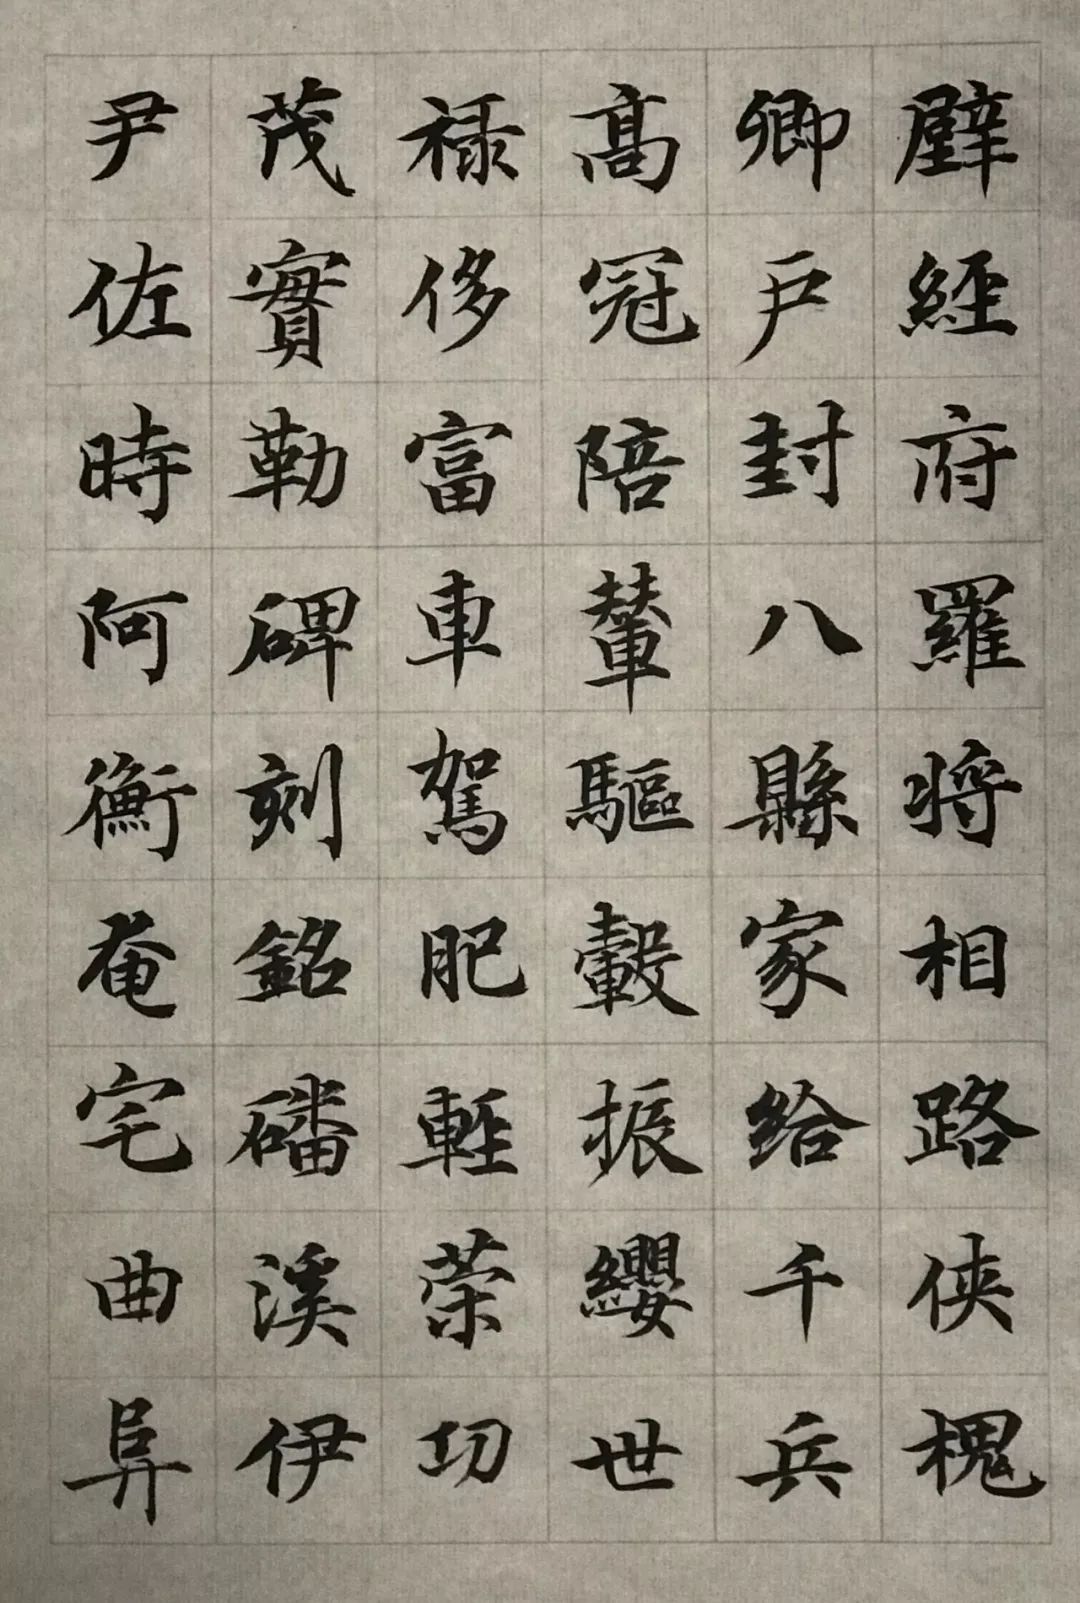 壁經府羅将相路俠槐
卿戶封八縣家給千兵
髙冠陪輦驅轂振纓世
禄侈富車駕肥輕榮功
茂實勒碑刻銘磻溪伊
尹佐時阿衡奄宅曲阜